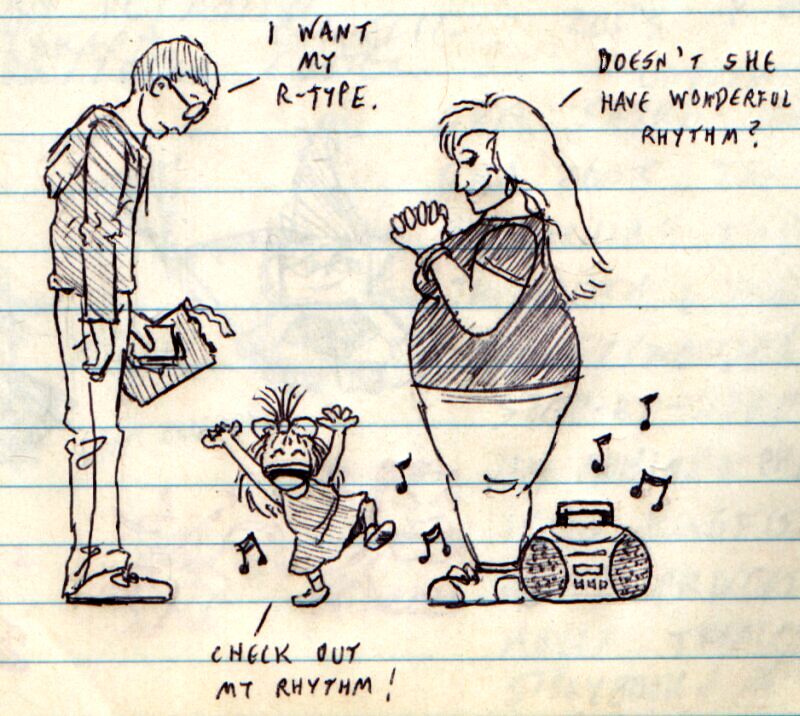 I WANT
MY
R-TYPE.
DOESN'T SHE
HAVE WONDERFUL
RHYTHM?
CHECK OUT
MY RHYTHM!